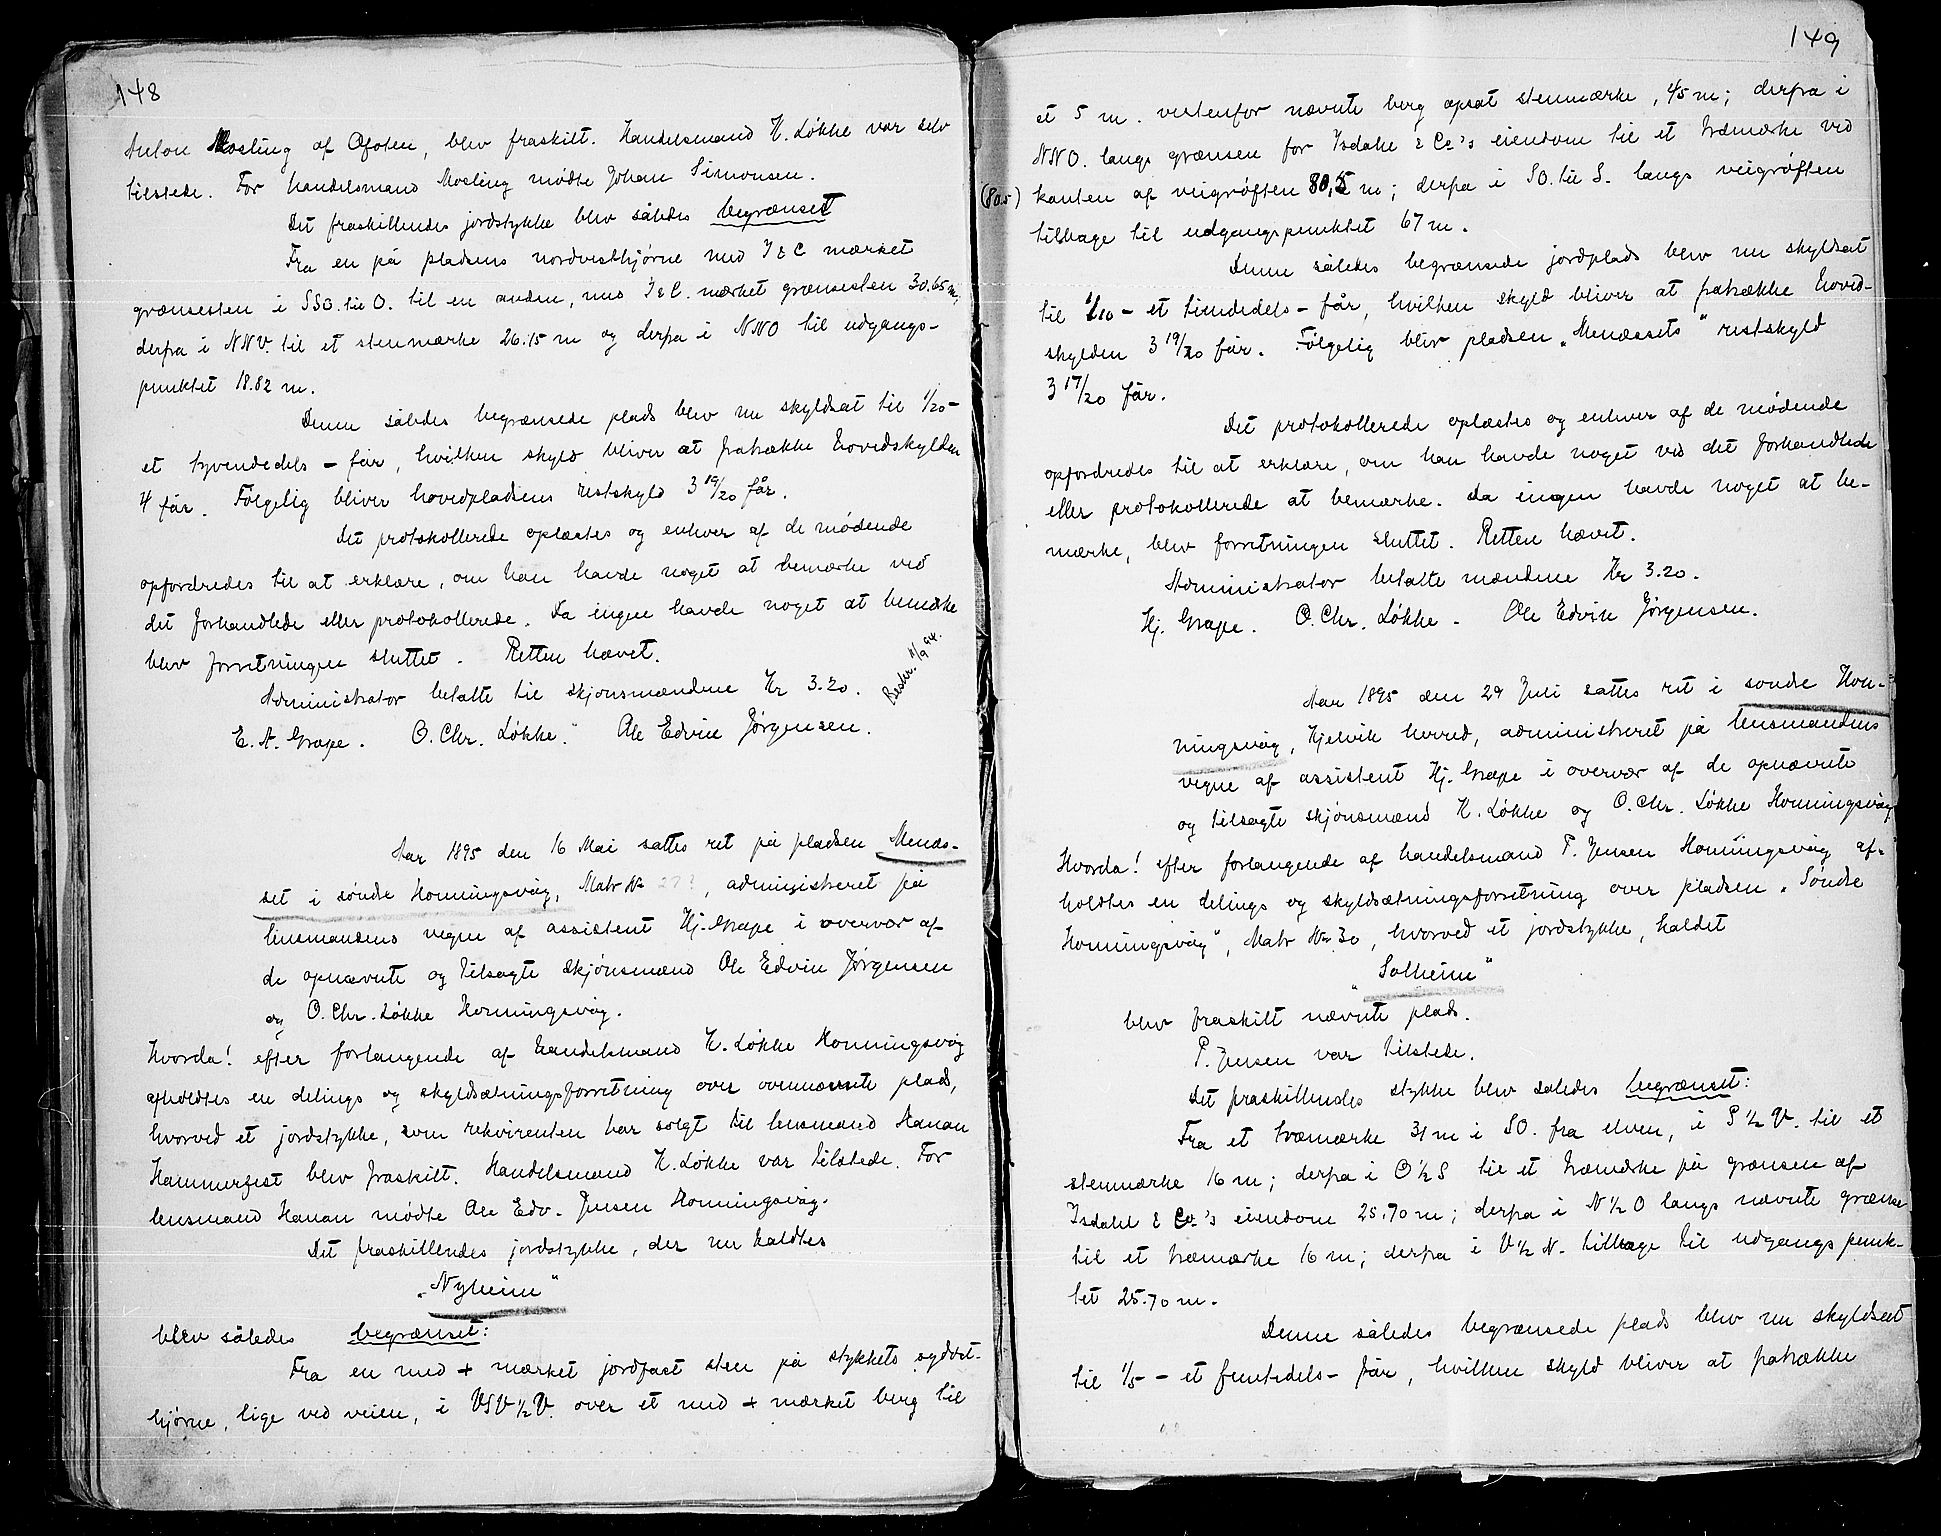 148
Anton Mosling af Ofoten, blev fraskilt. Handelsmand H. Løkke var selv
tilstede. For handelsmand Mosling mødte Johan Simonsen.
Det fraskillendes jordstykke blev således begrænset
Fra en på pladsens nordvesthjørne med I & C mærket
grænsesten i SSO. til O. til en anden, med I & C. mærket grænsesten 30.65 m,
derfra i NNV. til et stenmærke 26.15 m og derfra i NNO til udgangs-
punktet 18.82 m.
Denne således begrænsede plads blev nu skyldsat til 1/20 -
et tyvendedels - får, hvilken skyld bliver at fratrække hovedskylden
4 får. Følgelig bliver hovedpladsens restskyld 3 19/20 får.
Det protokollerede oplæstes og enhver af de mødende
opfordredes til at erklære, om han havde noget at bemærke ved
det forhandlede eller protokollerede. Da ingen havde noget at bemærke
blev forretningen sluttet. Retten hævet.
Administrator betalte til skjønsmændene Kr 3.20.
E. A. Grape. O. Chr. Løkke. Ole Edvin Jørgensen.
Beskr. 11/9 94.
Aar 1895 den 16 Mai sattes ret på pladsen Menæs-
set i søndre Honningsvåg, Matr № 27?, administreret på
lensmandens vegne af assistent Hj. Grape i overvær af
de opnævnte og tilsagte skjønsmænd Ole Edvin Jørgensen
og O. Chr. Løkke Honningsvåg.
Hvorda! efter forlangende af handelsmand H. Løkke Honningsvåg
afholdtes en delings og skyldsætningsforretning over ovennævnte plads,
hvorved et jordstykke, som rekvirenten har solgt til lensmand Hanan
Hammerfest blev fraskilt. Handelsmand H. Løkke var tilstede. For
lensmand Hanan mødte Ole Edv. Jensen Honningsvåg.
Det fraskillendes jordstykke, der nu kaldtes
"Nyheim"
blev således begrænset:
Fra en med + mærket jordfast sten på stykkets sydøst-
hjørne, lige ved veien, i VSV ½ V. over et med + mærket berg til
149
et 5 m. vestenfor nævnte berg opsat stenmærke, 45 m; derfra i
NNO. langs grænsen for Isdahl & Co's eiendom til et træmærke ved
(80.5) kanten af veigrøften 80,5 m; derfra i SO. til S. langs veigrøften
tilbage til udgangspunktet 67 m.
Denne således begrænsede jordplads blev nu skyldsat
til 1/10 - et tiendedels - får, hvilken skyld bliver at fratrække hoved-
skylden 3 19/20 får. Følgelig blir pladsen "Menæssets" restskyld
3 17/20 får.
Det protokollerede oplæstes og enhver af de mødende
opfordredes til at erklære, om han havde noget ved det forhandlede
eller protokollerede at bemærke. Da ingen havde noget at be-
mærke, blev forretningen sluttet. Retten hævet.
Administrator betalte mændene Kr 3.20.
Hj. Grape. O. Chr. Løkke. Ole Edvin Jørgensen.
Aar 1895 den 29 Juli sattes ret i søndre Hon-
ningsvåg, Kjelvik herred, administreret på lensmandens
vegne af assistent Hj. Grape i overvær af de opnævnte
og tilsagte skjønsmænd H. Løkke og O. Chr. Løkke Honningsvåg
Hvorda! efter forlangende af handelsmand P. Jensen Honningsvåg af-
holdtes en delings og skyldsætningsforretning over pladsen "Søndre
Honningsvåg", Matr № 30, hvorved et jordstykke, kaldet
"Solheim"
blev fraskilt nævnte plads.
P. Jensen var tilstede.
Det fraskillendes stykke blev således begrænset:
Fra et træmærke 31 m i SO. fra elven, i S ½ V. til et
stenmærke 16 m; derfra i O ½ S til et træmærke på grænsen af
Isdahl & Co's eiendom 25.70 m; derfra i N ½ O langs nævnte grænse
til et træmærke 16 m; derfra i V ½ N. tilbage til udgangspunk-
tet 25.70 m.
Denne således begrænsede plads blev nu skyldsat
til 1/5 - et femtedels - får, hvilken skyld bliver at fratrække